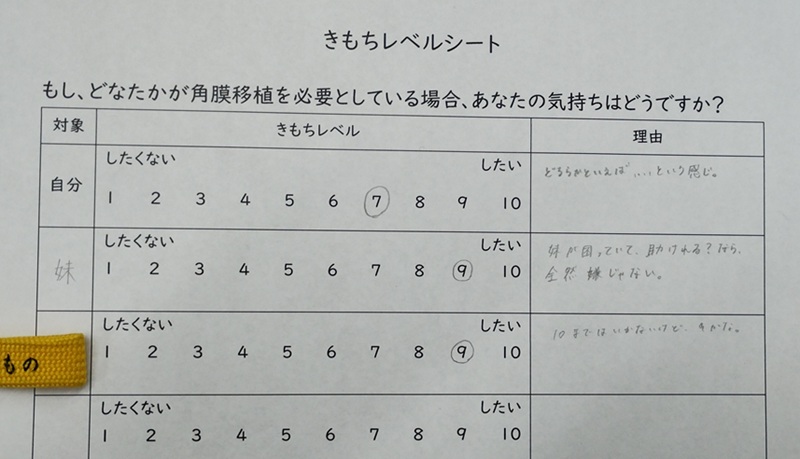 きもちレベルシート
もし、どなたかが角膜移植を必要としている場合、あなたの気持ちはどうですか?
対象 きもちレベル 理由
したくない したい
自分 1 2 3 4 5 6 7 8 9 10
どちらかといえば....という感じ。
したくない したい
妹 1 2 3 4 5 6 7 8 9 10
妹が困っていて、助けれる?なら、
全然嫌じゃない。
したくない したい
1 2 3 4 5 6 7 8 9 10
10まではいかないけど、9かな。
もの
したくない したい
1 2 3 4 5 6 7 8 9 10